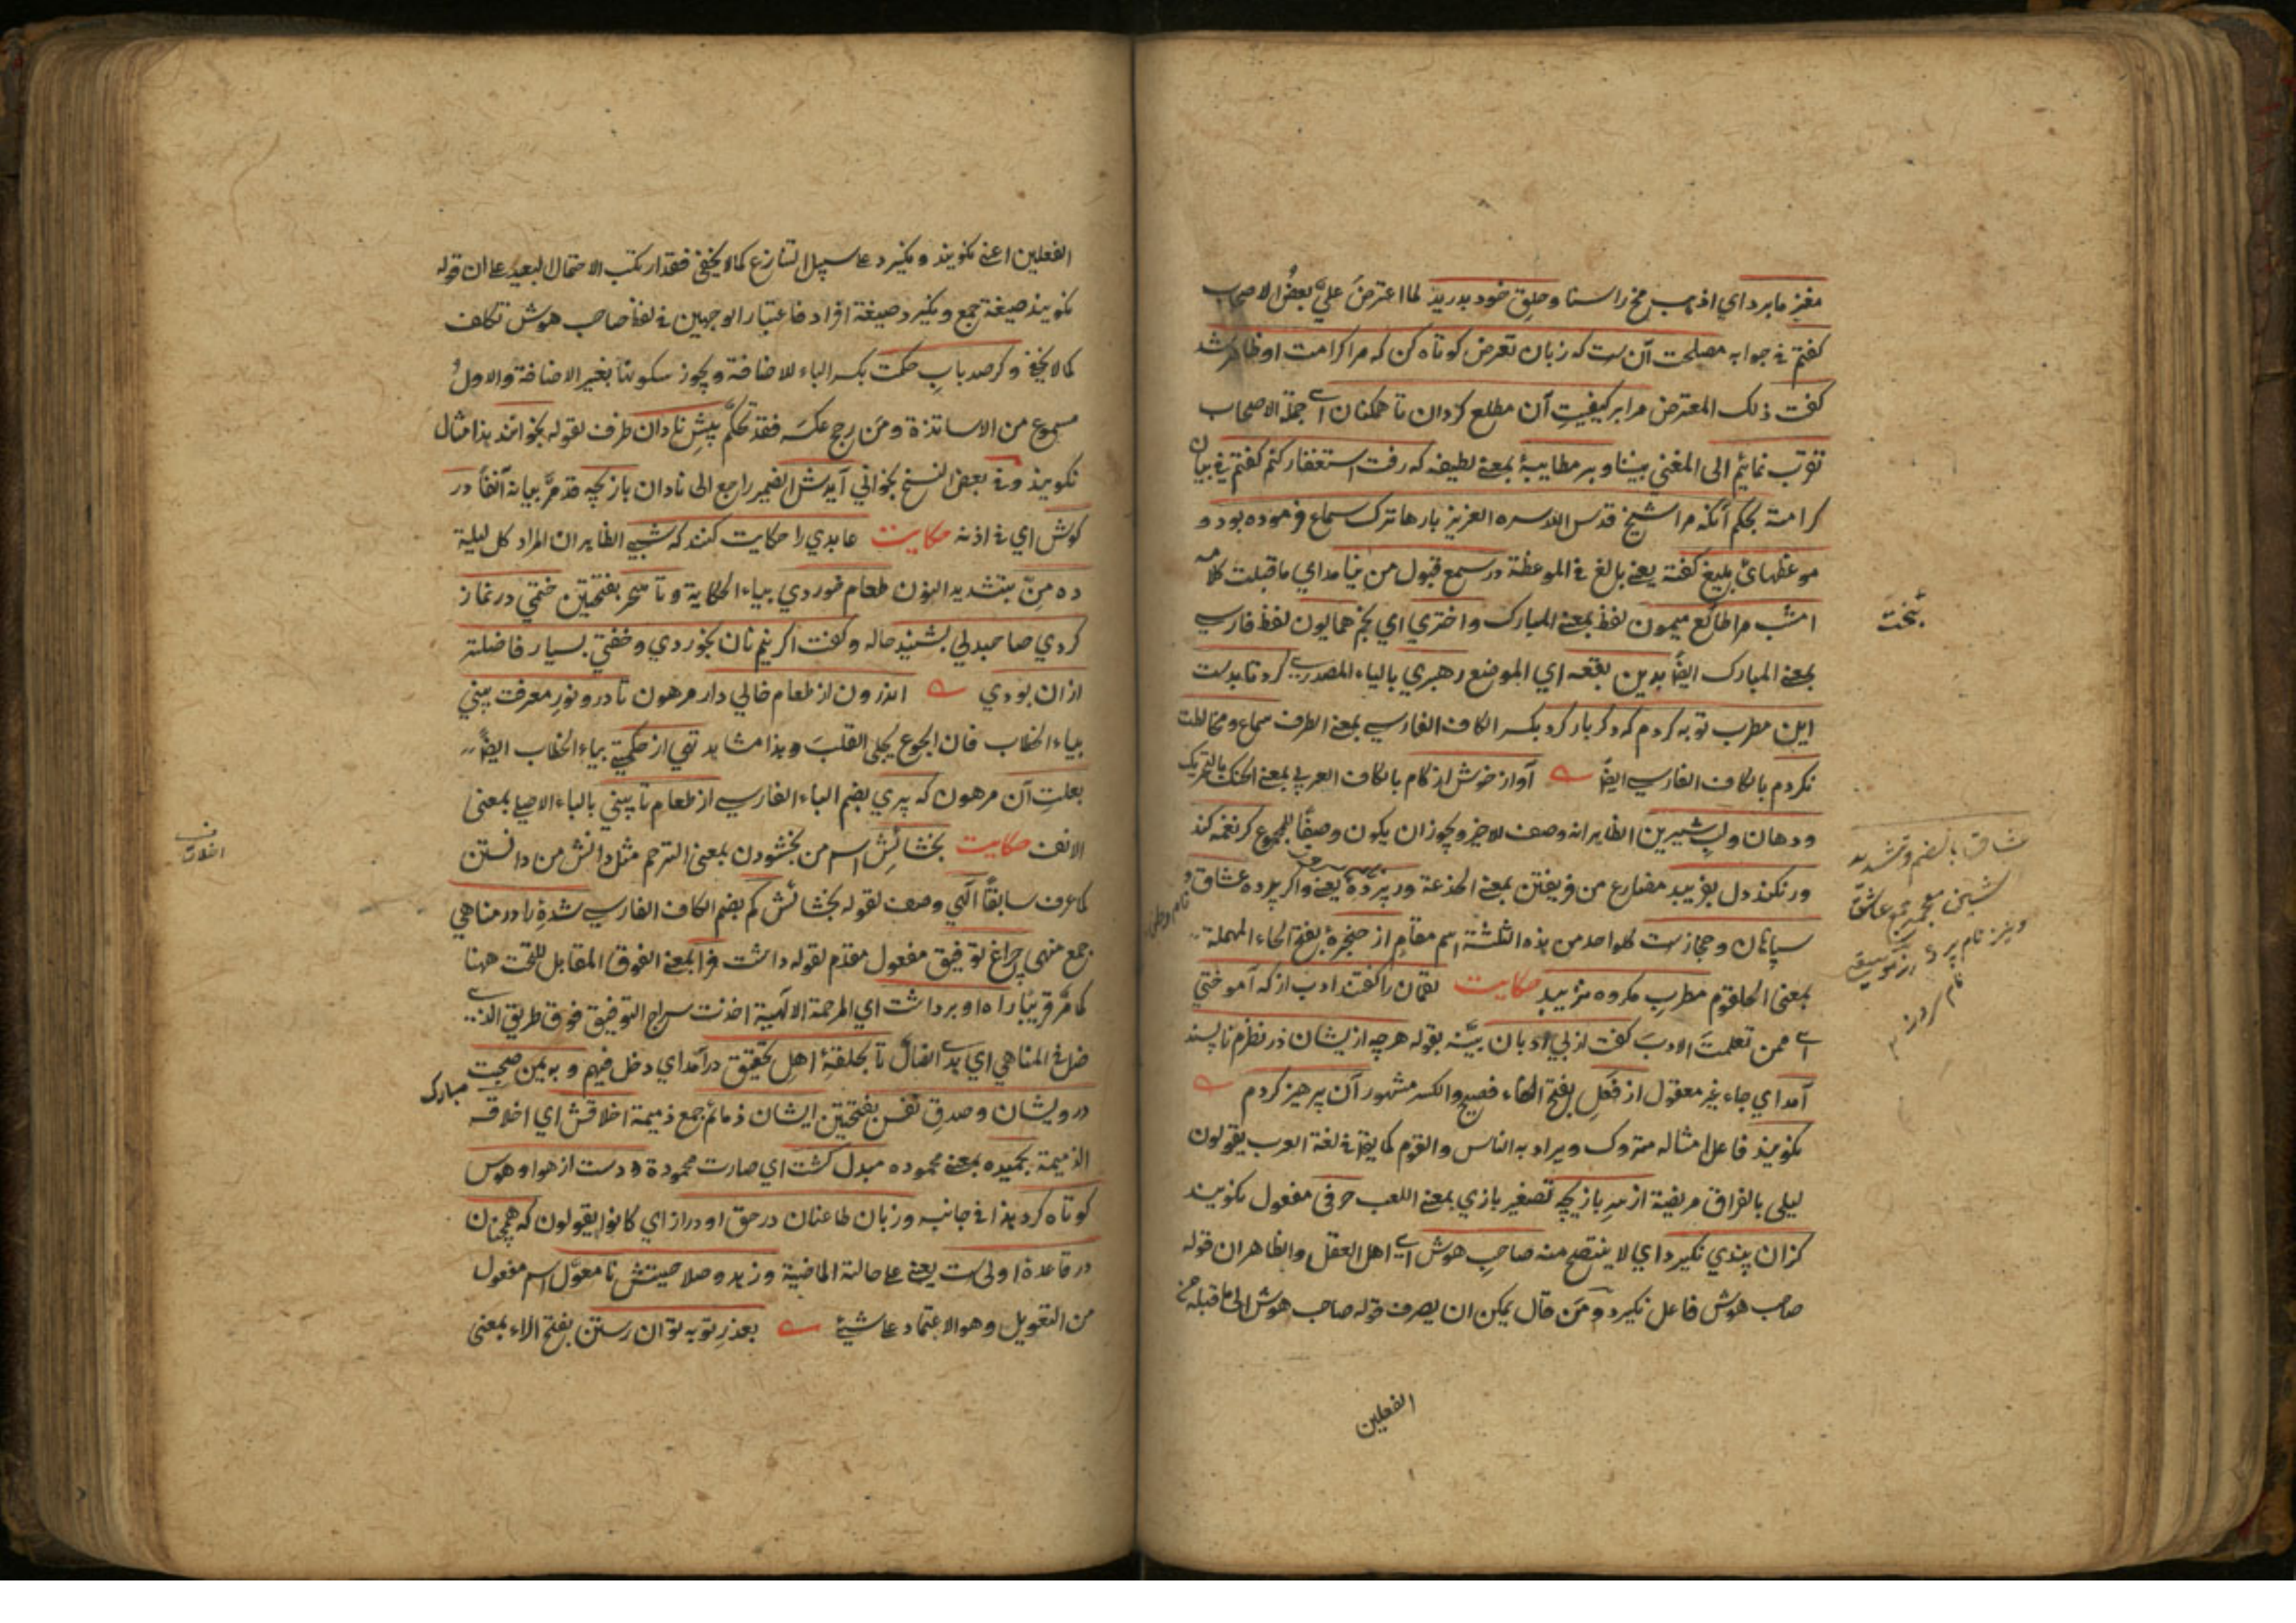 مغز ما برد اي اذهب مخ راسنا وحلق خود بدريد لما اعترض عليّ بعض الاصحاب
كفتم في جوابه مصلحت آن ست كه زبان تعرض كوتاه كن كه مرا كرامت او ظاهر شد
كفت ذلك المعترض مرا بر كيفيت آن مطلع كردان تا همكنان اي جملة الاصحاب
تقرب نمائيم الى المغني بيننا وبر مطايبهٔ بمعنى لطيفه كه رفت استغفار كنم كفتم في بيان
كرامته بحكم آنكه مرا شيخ قدس الله سره العزيز بارها ترك سماع فرموده بود و
موعظهاى بليغ كفته يعني بالغ في الموعظة در سمع قبول من نيامد اي ما قبلت كلامه
امشب مرا طالع ميمون لفظ بمعنى المبارك واختري اي نجم همايون لفظ فارسي
بمعنى المبارك ايضًا بدين بقعه اي الموضع رهبري بالياء المصدري كرد تا بدست
اين مطرب توبه كردم كه دكر بار كرد بكسر الكاف الفارسي بمعنى الطرف سماع ومخالطت
نكردم بالكاف الفارسي ايضًا آواز خوش از كام بالكاف العربي بمعنى الحنك بالتحريك
ودهان ولب شيرين الظاهر انه وصف للاخير ويجوز ان يكون وصفًا للمجموع كر نغمه كند
ور نكند دل بفريبد مضارع من فريفتن بمعنى الخدعة ور پردهٔ يعني واكر پرده عشاق و
سپاهان وحجازست كل واحد من هذه الثلثة اسم مقام از حنجرهٔ بفتح الحاء المهملة
بمعنى الحلقوم مطرب مكروه نزيبد حكايت لقمان را كفتند ادب از كه آموختي
اي ممن تعلمت الادب كفت از بي ادبان بيّنه بقوله هرچه از يشان در نظرم ناپسند
آمد اي جاء غير معقول از فعل بفتح الفاء فصيح والكسر مشهور آن پرهيز كردم
نكويند فاعل امثاله متروك ويراد به الناس والقوم كما يقال في لغة العرب يقولون
ليلى بالفراق مريضة از سر بازيچه تصغير بازي بمعنى اللعب حرفى مفعول نكويند
كزان پندي نكيرد اي لا ينتصح منه صاحب هوش اي اهل العقل والظاهر ان قوله
صاحب هوش فاعل نكيرد ومَن قال يمكن ان يصرف قوله صاحب هوش الى ما قبله من
الفعلين
بخت
عشاق بالضم وتشديد
شين معجمه جمع عاشق
ونيز نام پرده از موسيقى
الفعلين اعني نكويند ونكيرد على سبيل التنازع كما لا يخفى فقد ارتكب الاحتمال البعيد على ان قوله
نكويند صيغة جمع ونكيرد صيغة افراد فاعتبار الوجهين في لفظ صاحب هوش تكلف
كما لا يخفى وكر صد باب حكمت بكسر الباء للاضافة ويجوز سكونها بغير الاضافة والاول
مسموع من الاساتذة ومن رجح عكسه فقد تحكّم پيش نادان ظرف لقوله بخوانند هذا مثال
نكويند وفي بعض النسخ بخواني آيدش الضمير راجع الى نادان بازيچه قد مرّ بيانه آنفًا در
كوش اي في اذنه حكايت عابدي را حكايت كنند كه شبي الظاهر ان المراد كل ليلة
ده منّ بتشديد النون طعام خوردي بياء الحكاية وتا سحر بفتحتين ختمي در نماز
كردي صاحبدلي بشنيد حاله وكفت اكر نيم نان بخوردي وخفتي بسيار فاضلتر
ازان بودي اندرون از طعام خالي دار مرهون تا درو نور معرفت بيني
بياء الخطاب فان الجوع يجلي القلب وهذا مشاهد تهي از حكمتي بياء الخطاب ايضًا
بعلت آن مرهون كه پري بضم الباء الفارسي از طعام تا بيني بالياء الاصلي بمعنى
الانف حكايت بخشائش اسم من بخشودن بمعنى الترحم مثل دانش من دانستن
كما عرف سابقًا الٓهي وصف لقوله بخشائش كم بضم الكاف الفارسي شدهٔ را در مناهي
جمع منهى چراغ توفيق مفعول مقدم لقوله داشت فرا بمعنى الفوق المقابل للتحت ههنا
كما مرّ قريبًا راه او برداشت اي المرحمة الالٓهية اخذت سراج التوفيق فوق طريق الذي
ضل في المناهي اي يد الضال تا بحلقهٔ اهل تحقيق درآمد اي دخل فيهم وبه يمن صحبت
مبارك
درويشان وصدق نفس بفتحتين ايشان ذمائم جمع ذميمة اخلاقش اي اخلاقه
الذميمة بحميده بمعنى محموده مبدل كشت اي صارت محمودة ودست از هوا وهوس
كوتاه كرد هذا في جانبه وزبان طاعنان در حق او دراز اي كانوا يقولون كه همچنان
در قاعدهٔ اولى ست يعني على حالته الماضية وزهد وصلاحيتش نا معوّل اسم مفعول
من التعويل وهو الاعتماد على شيئ بعذر توبه توان رستن بفتح الراء بمعنى